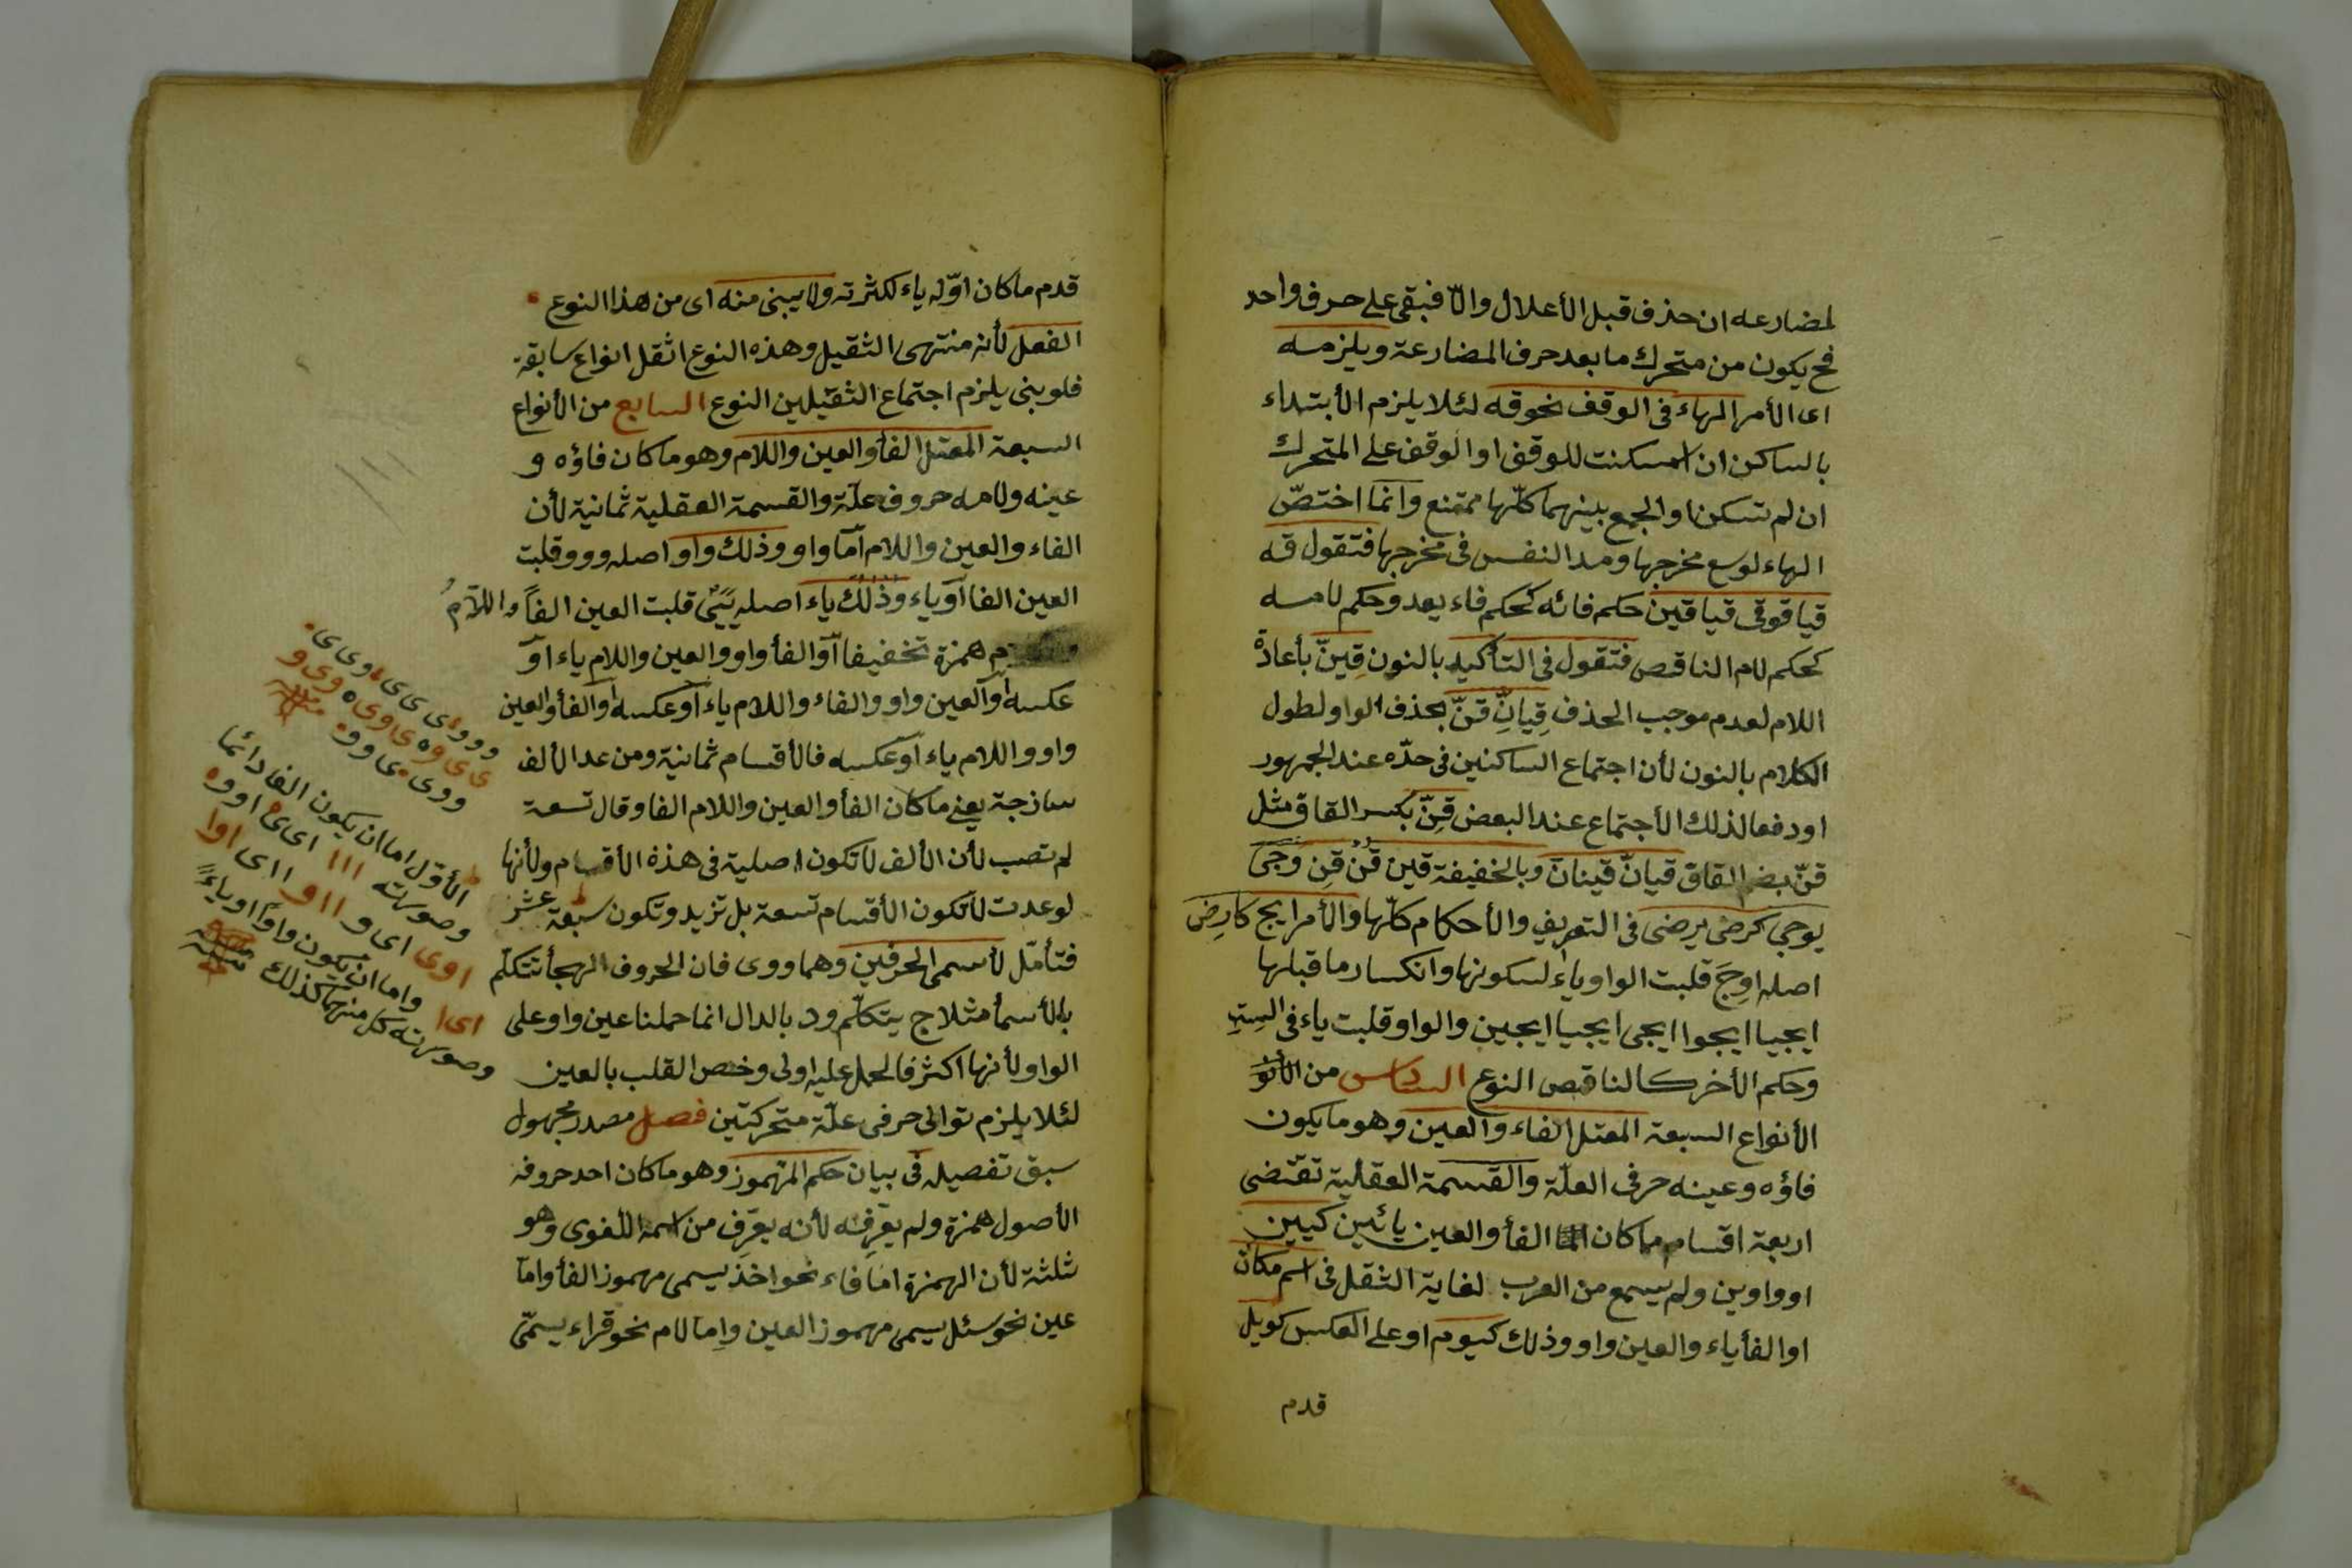 لمضارعه ان حذف قبل الأعلال والّا فبقى على حرف واحد
فح يكون من متحرك ما بعد حرف المضارعة ويلزمه
اى الأمر الهاء فى الوقف نحو قه لئلا يلزم الأبتداء
بالساكن ان اسكنت للوقف او الوقف على المتحرك
ان لم تسكن او الجمع بينهما كلّها ممتنع وانما اختصّ
الهاء لوسع مخرجها ومد النفس فى مخرجها فتقول قه
قيا قو قى قيا قين حكم فائه كحكم فاء يعد وحكم لامه
كحكم لام الناقص فتقول فى التأكيد بالنون قِينّ بأعادة
اللام لعدم موجب الحذف قِيانِّ قنّ بحذف الواو لطول
الكلام بالنون لأن اجتماع الساكنين فى حدّه عند الجمهور
او دفعا لذلك الأجتماع عند البعض قِنّ بكسر القاف مثل
قنّ بضم القاف قيانّ قينانّ وبالخفيفة قين قُن قِن وَجَى
يوجى كرضى يرضى فى التعريف والأحكام كلّها والأمر ايج كارض
اصله اوجَ قلبت الواو ياء لسكونها وانكسار ما قبلها
ايجيا ايجوا ايجى ايجيا ايجين والواو قلبت ياء فى
وحكم الأخر كالناقص النوع السادس من
الأنواع السبعة المعتل الفاء والعين وهو ما يكون
فاؤه وعينه حرفى العلّة والقسمة العقلية تقتضى
اربعة اقسام ما كان الفأ والعين يائين كيين
او واوين ولم يسمع من العرب لغاية الثقل فى اسم مكان
او الفأ ياء والعين واو وذلك كيوم او على العكس كويل
قدم
قدم ما كان اوّله ياء لكثرته ولا يبنى منه اى من هذا النوع
الفعل لأنه منتهى الثقيل وهذه النوع اثقل انواع سابقة
فلو بنى يلزم اجتماع الثقيلين النوع السابع من الأنواع
السبعة المعتل الفأ والعين واللام وهو ما كان فاؤه و
عينه ولامه حروف علّة والقسمة العقلية ثمانية لأن
الفاء والعين واللام امّا واو وذلك واو اصله ووو قلبت
العين الفا او ياء وذلك ياء اصله ييى قلبت العين الفاً واللام
همزة تخفيفا او الفأ واو والعين واللام ياء او
عكسه او العين واو والفاء واللام ياء او عكسه او الفأ والعين
واو واللام ياء او عكسه فالأقسام ثمانية ومن عد الألف
سازجة يعنى ما كان الفأ والعين واللام الفا وقال تسعة
لم تصب لأن الألف لا تكون اصلية فى هذه الأقسام ولأنها
لو عدت لا تكون الأقسام تسعة بل تزيد وتكون سبعة عشر
فتأمّل لأسمى الحرفين وهما ووى فان الحروف الهجأ تتكلّم
بالأسمأ مثلا ج يتكلّم ود بالدال انما حملنا عين واو على
الواو لأنها اكثر فالحمل عليه اولى وخص القلب بالعين
لئلا يلزم توالى حرفى علّة متحركتين فصل مصدر مجهول
سبق تفصيله فى بيان حكم المهموز وهو ما كان احد حروفه
الأصول همزة ولم يعرفه لأنه يعرف من اسمه اللغوى وهو
ثلثة لأن الهمزة امّا فاء نحو اخذ يسمى مهموز الفأ وامّا
عين نحو سئل يسمى مهموز العين وامّا لام نحو قراء يسمّى
الأوّل اما ان يكون الفا دائما
وصورته ااا اىى اوو
اوى اى و ااو ااى اوا
اىا واما ان يكون واواً او ياءً
وصورته كل منهما كذلك